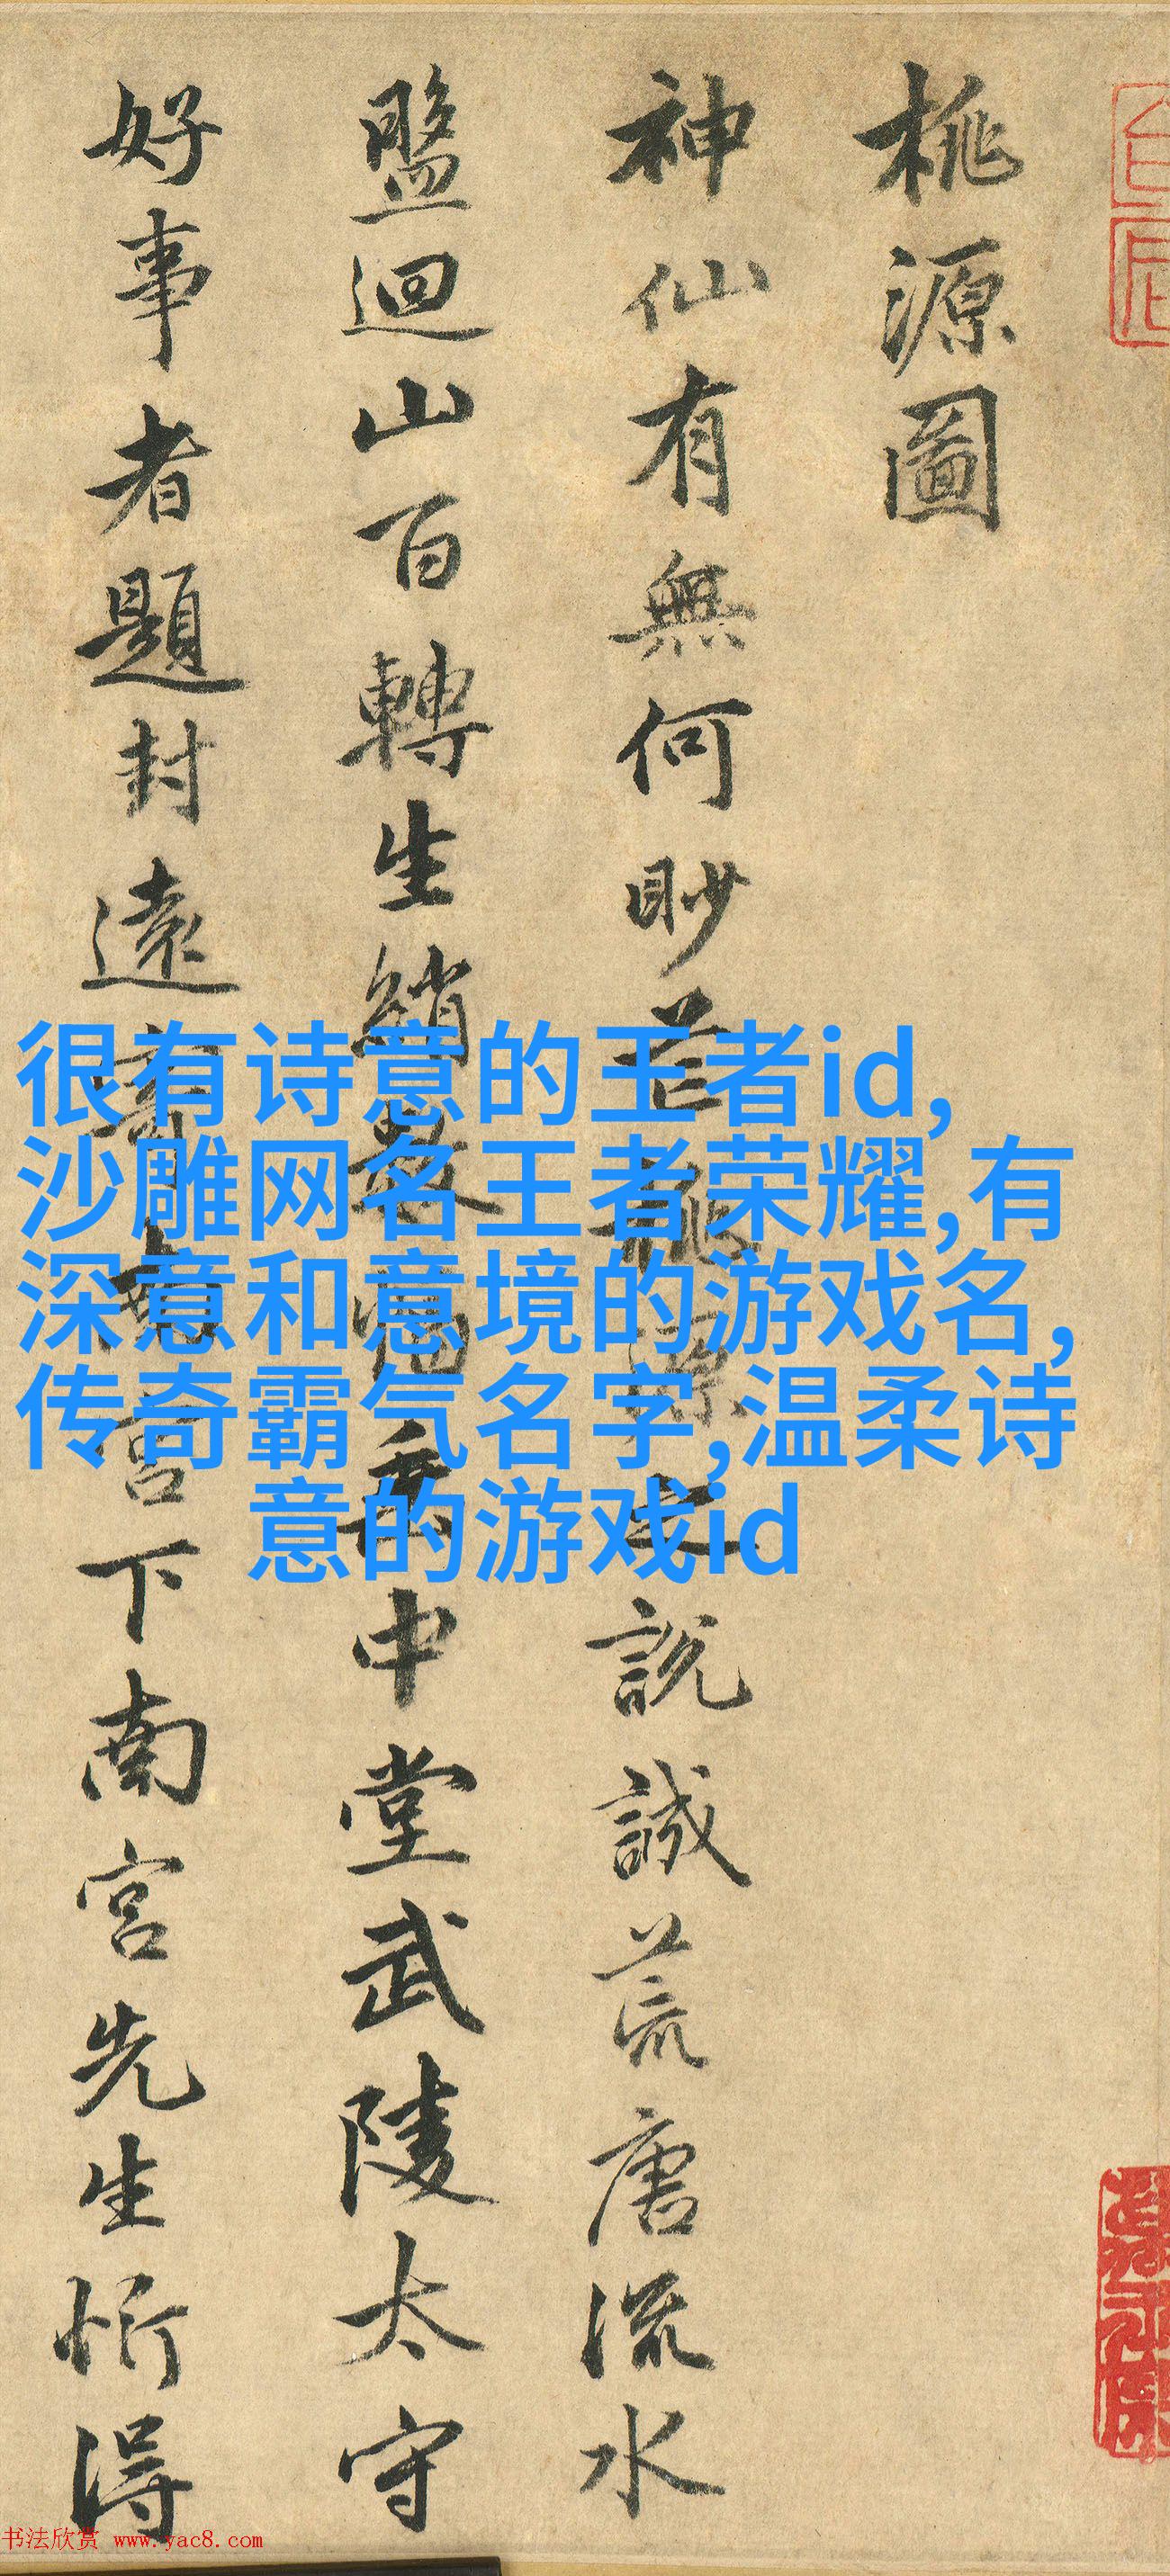 桃源圖
神仙有無何眇芒桃源之說誠荒唐流水
盤迴山百轉生綃數幅垂中堂武陵太守
好事者題封遠寄南宮下南宮先生忻得
很有诗意的王者id,
沙雕网名王者荣耀,有
深意和意境的游戏名,
传奇霸气名字,温柔诗
意的游戏id
书法欣赏 www.yac8.com